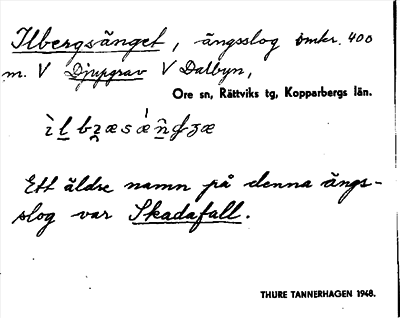 Ilbergsänget, ängsslog omkr. 400
m. V Djupgrav V Dalbyn,
Ore sn, Rättviks tg, Kopparbergs län.
Ett äldre namn på denna ängs-
slog var Skadafall.
THURE TANNERHAGEN 1948.